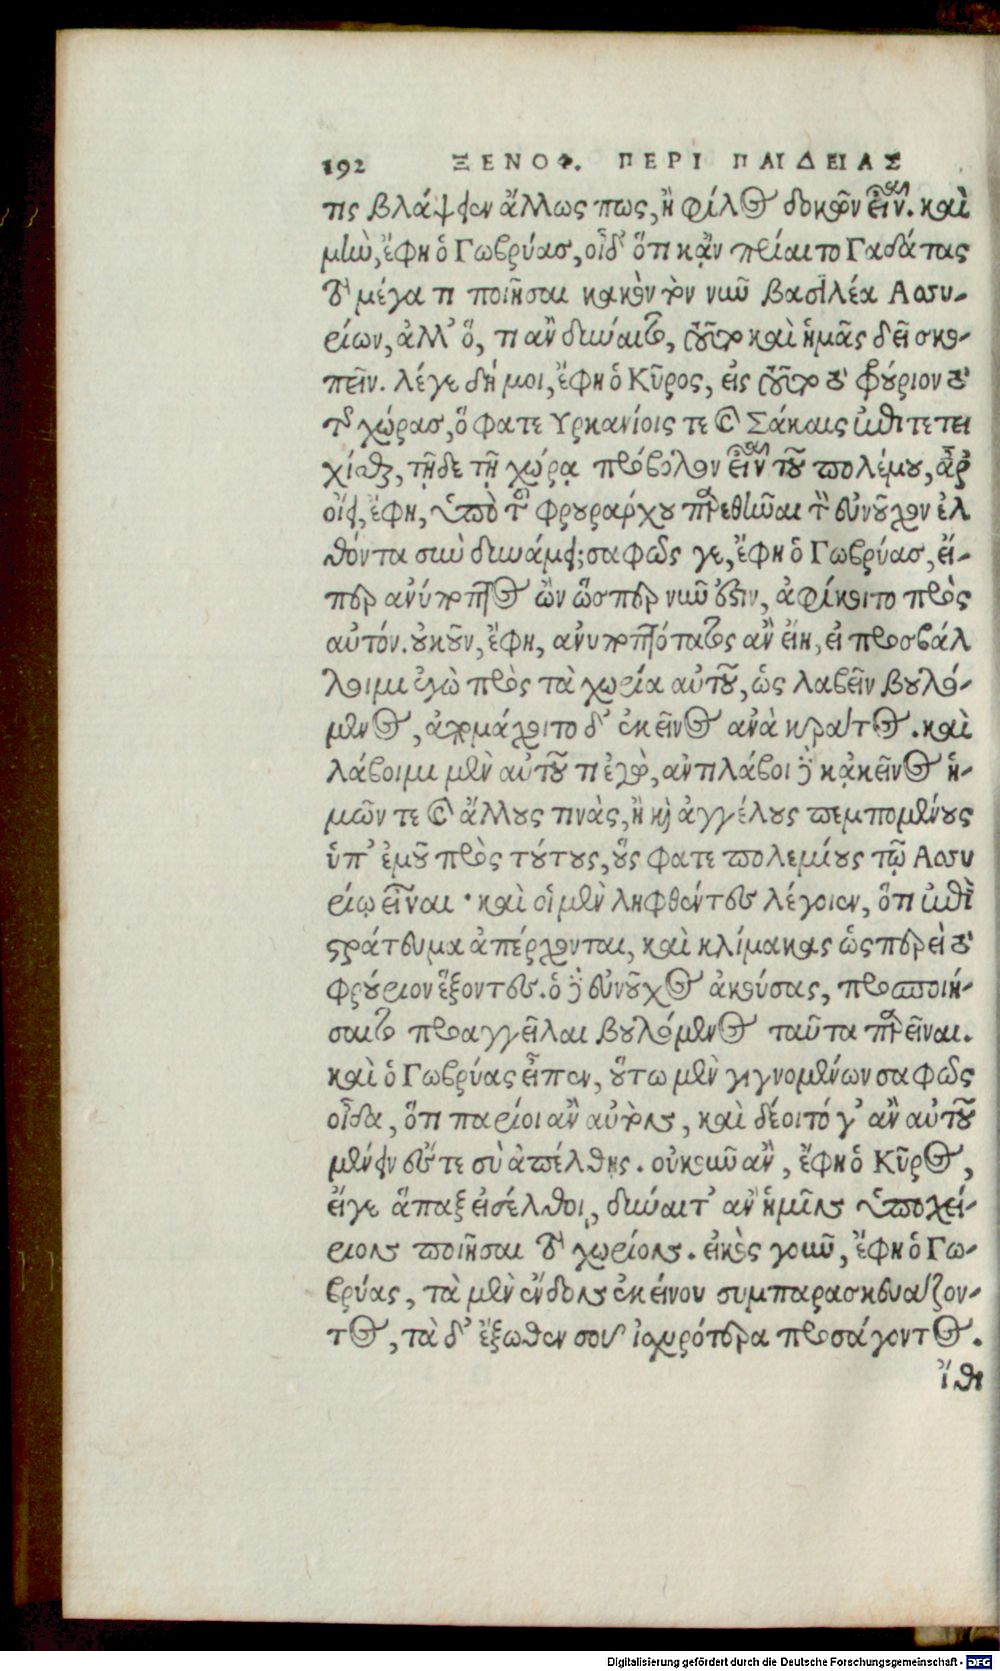 192 ΞΕΝΟΦ. ΠΕΡΙ ΠΑΙΔΕΙΑΣ
τις βλάψειεν ἄλλως πως, ἢ φίλος δοκῶν εἶναι. καὶ
μὴν, ἔφη ὁ Γωβρύας, οἶδ' ὅτι κᾂν πρίαιτο Γαδάτας
τὸ μέγα τι ποιῆσαι κακὸν τὸν νῦν βασιλέα Ασσυ-
ρίων, ἀλλ' ὅ, τι ἂν δύναιτο, τοῦτο καὶ ἡμᾶς δεῖ σκο-
πεῖν. λέγε δή μοι, ἔφη ὁ Κῦρος, εἰς τοῦτο τὸ φρούριον τὸ
πρὸ τῆς χώρας, ὅ φατε Υρκανίοις τε καὶ Σάκαις ἐπιτετει
χίσθαι, τῇδε τῇ χώρᾳ πρόβολον εἶναι τοῦ πολέμου, ἆρ'
οἴει, ἔφη, ὑπὸ τοῦ φρουράρχου παρεθῆναι τὸν εὐνοῦχον ἐλ
θόντα σὺν δυνάμει; σαφῶς γε, ἔφη ὁ Γωβρύας, εἴ-
περ ἀνύποπτος ὢν ὥσπερ νῦν ἐστιν, ἀφίκοιτο πρὸς
αὐτόν. οὐκοῦν, ἔφη, ἀνυποπτότατος ἂν εἴη, εἰ προσβάλ
λοιμι ἐγὼ πρὸς τὰ χωρία αὐτοῦ, ὡς λαβεῖν βουλό-
μενος, ἀπομάχοιτο δ' ἐκεῖνος ἀνὰ κράτος. καὶ
λάβοιμι μὲν αὐτοῦ τι ἐγὼ, ἀντιλάβοι δὲ κᾀκεῖνος ἡ-
μῶν τε καὶ ἄλλους τινὰς, ἢ καὶ ἀγγέλους πεμπομένους
ὑπ' ἐμοῦ πρὸς τούτους, οὕς φατε πολεμίους τῷ Ασσυ
ρίῳ εἶναι · καὶ οἱ μὲν ληφθέντες λέγοιεν, ὅτι ἐπὶ
στράτευμα ἀπέρχονται, καὶ κλίμακας ὡς περεὶ τὸ
φρούριον ἕξοντες. ὁ δὲ εὐνοῦχος ἀκούσας, προσποιή-
σαιτο προαγγεῖλαι βουλόμενος ταῦτα παρεῖναι.
καὶ ὁ Γωβρύας εἶπεν, οὕτω μὲν γιγνομένων σαφῶς
οἶδα, ὅτι παρίοι ἂν αὐτὸν, καὶ δέοιτό γ' ἂν αὐτοῦ
μένειν ἔς τε σὺ ἀπέλθῃς. οὐκοῦν ἂν, ἔφη ὁ Κῦρος,
εἴγε ἅπαξ εἰσέλθοι, δύναιτ' ἂν ἡμῖν ὑποχεί-
ριον ποιῆσαι τὸ χωρίον. εἰκὸς γοῦν, ἔφη ὁ Γω-
βρύας, τὰ μὲν ἔνδον ἐκείνου συμπαρασκευάζον-
τος, τὰ δ' ἔξωθεν σοῦ ἰσχυρότερα προσάγοντος.
ἴθι
Digitalisierung gefördert durch die Deutsche Forschungsgemeinschaft - DFG